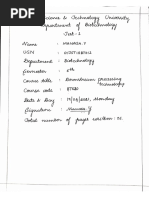 Science & Technology University
Department of Biotechnology
Test-1
Name : Manasa.Y
USN :
Department : Biotechnology
Semester : 6th
Course title : Downstream processing
Technology
Course code :
Date & Day : Monday
Signature : Manasa Y
Total number of pages written : 02.